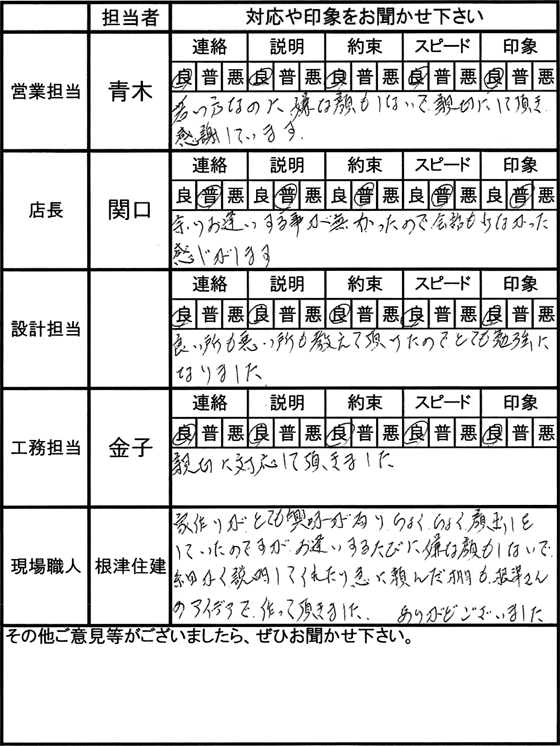 担当者 対応や印象をお聞かせ下さい
営業担当 青木
連絡 説明 約束 スピード 印象
良 普 悪 良 普 悪 良 普 悪 良 普 悪 良 普 悪
若い方なのに、嫌な顔もしないで、親切にして頂き
感謝しています。
店長 関口
連絡 説明 約束 スピード 印象
良 普 悪 良 普 悪 良 普 悪 良 普 悪 良 普 悪
余りお逢いする事が無かったので、会話も少なかった
感じがします
設計担当
連絡 説明 約束 スピード 印象
良 普 悪 良 普 悪 良 普 悪 良 普 悪 良 普 悪
良い所も悪い所も教えて頂けたのでとても勉強に
なりました。
工務担当 金子
連絡 説明 約束 スピード 印象
良 普 悪 良 普 悪 良 普 悪 良 普 悪 良 普 悪
親切に対応して頂きました
現場職人 根津住建
家作りがとても興味が有り、ちょくちょく顔出しを
していたのですが、お逢いするたびに嫌な顔もしないで
細かく説明してくれたり急に頼んだ棚も、根津さん
のアイデアで、作って頂きました。 ありがとございました
その他ご意見等がございましたら、ぜひお聞かせ下さい。